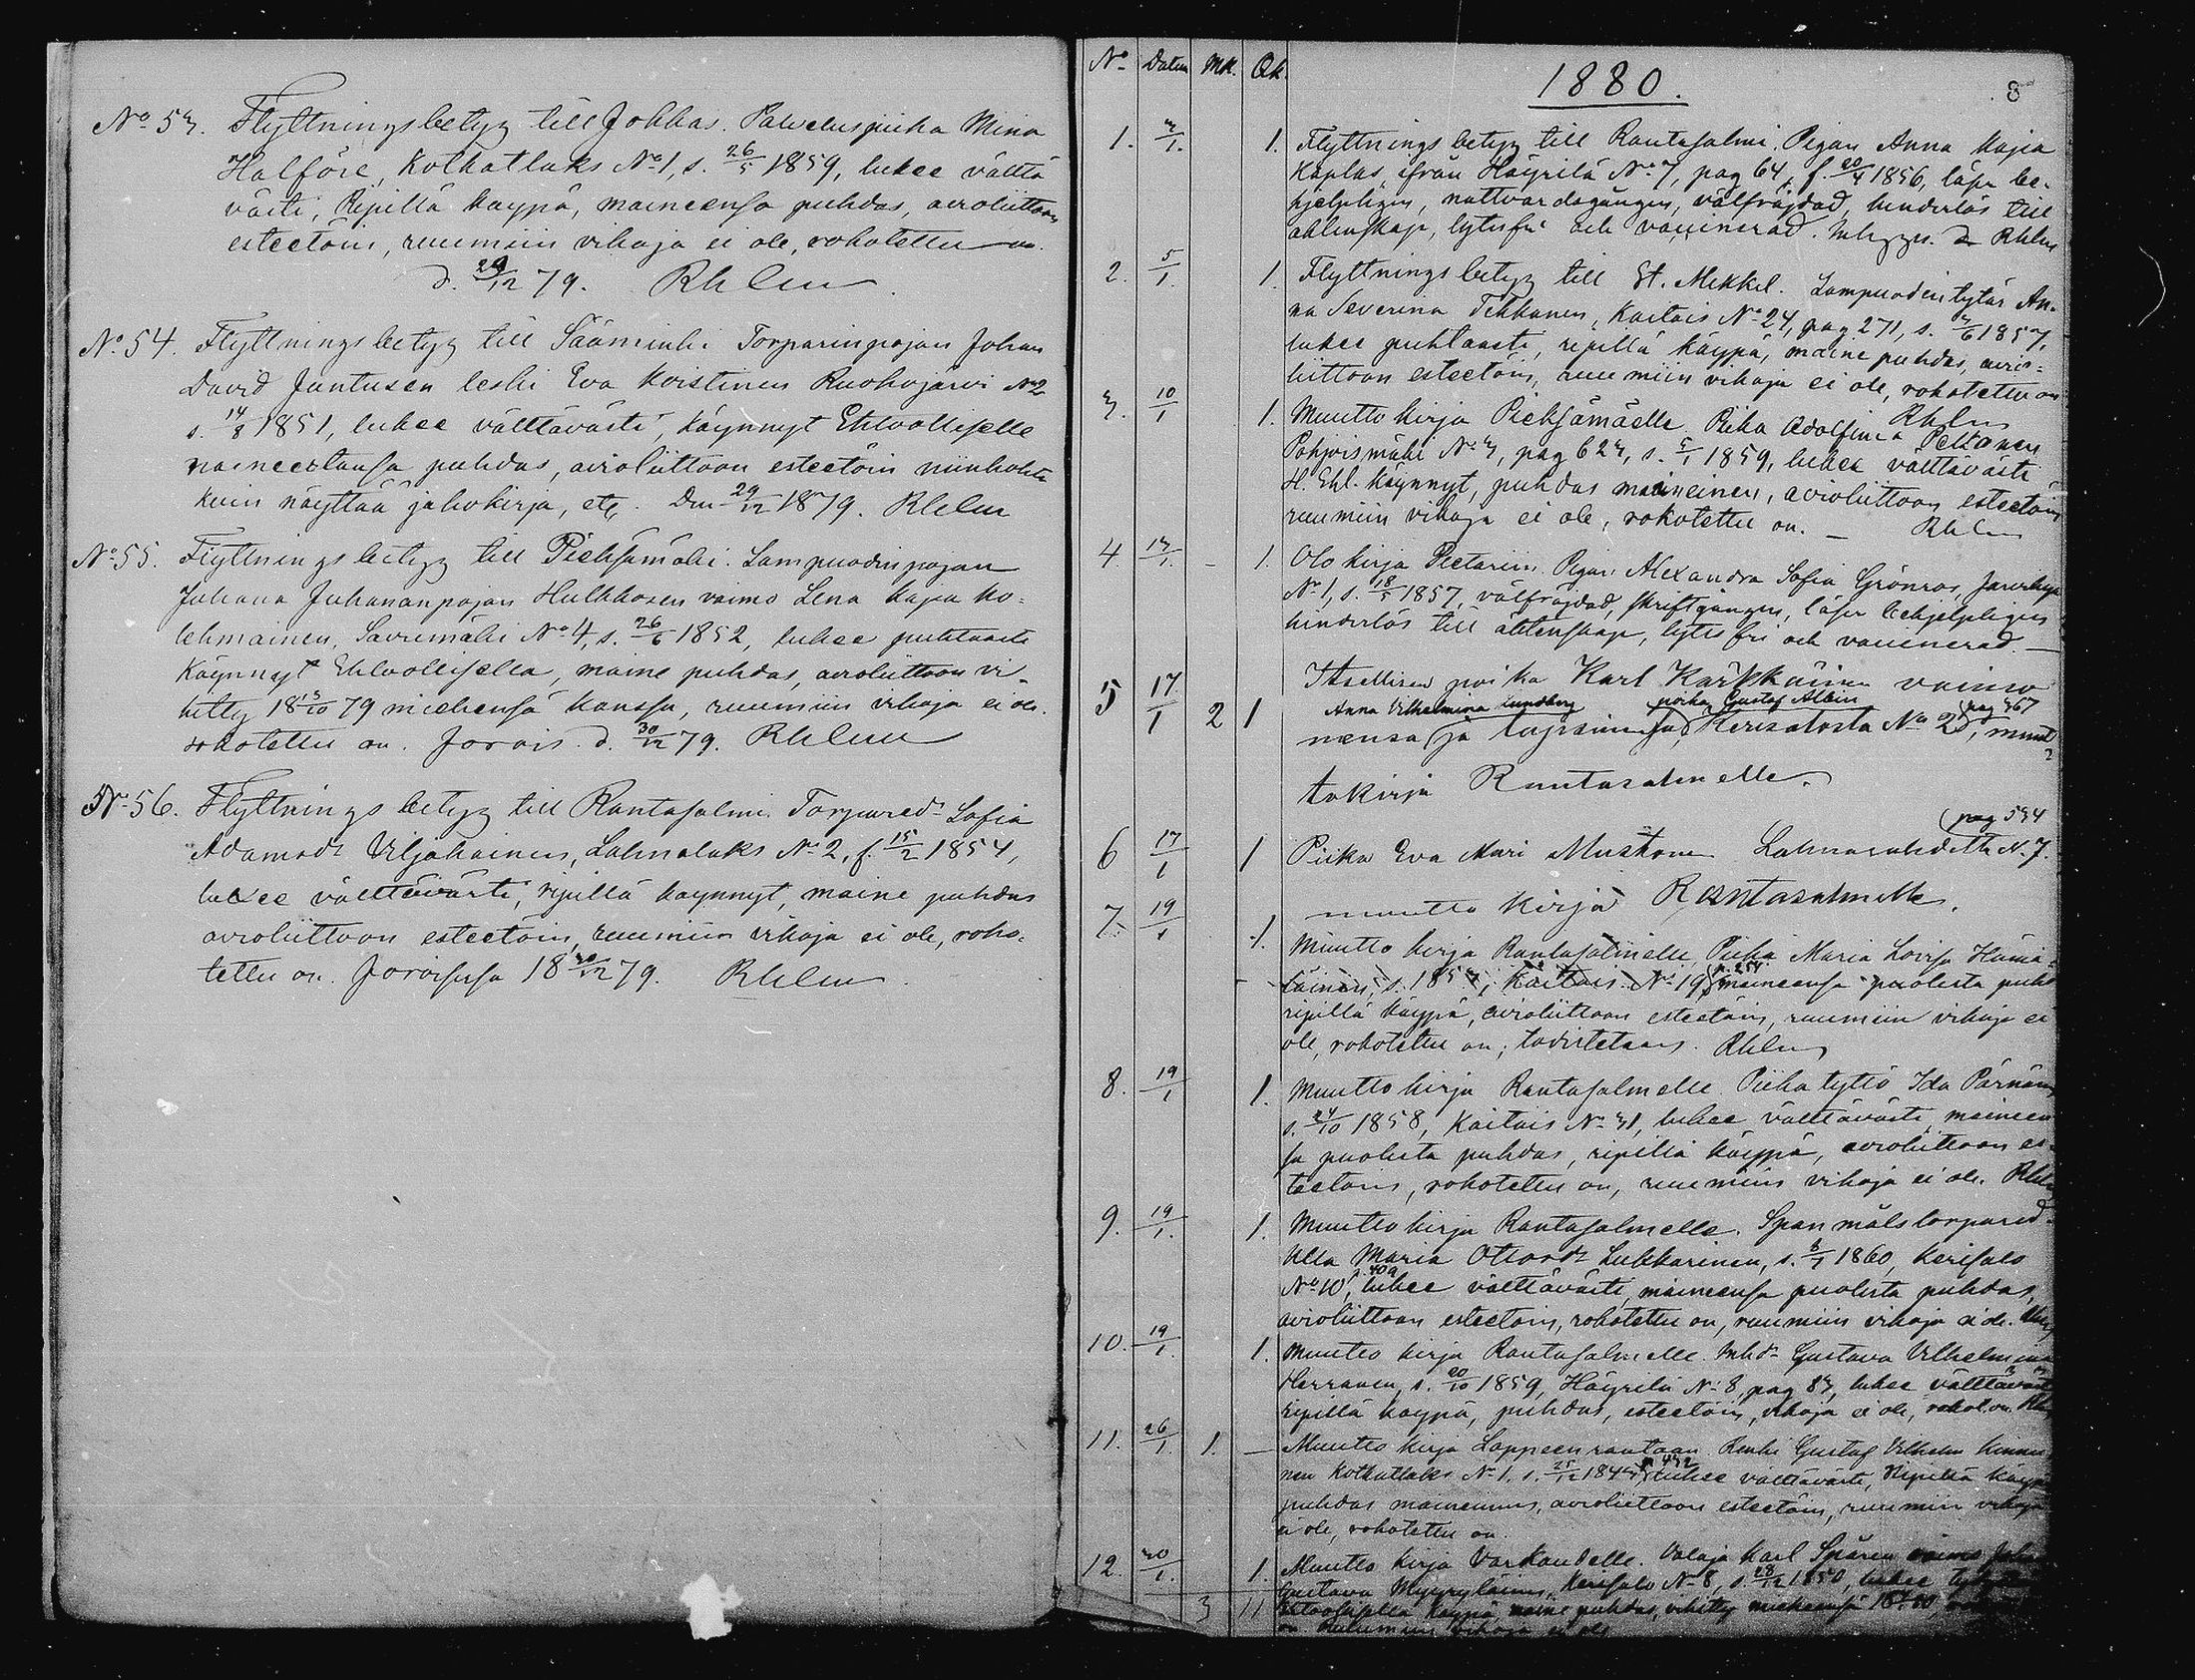 No 53. Flyttningsbetyg till Jokkas. Palveluspiika Mina
Halföre, Kotkatlaks No 1, s. 26/5 1859, lukee vältä
västi, Ripillä käypä, maineensa puhdas, avioliittoon
esteetöin, ruumiin vikoja ei ole, rokotettu on.
d. 29/12 79. Rhlm
No 54. Flyttningsbetyg till Sääminki Torparinpojan Johan
David Juntusen leski Eva Koistinen Ruokojärvi No 2
s. 14/8 1851, lukee välttävästi, käynnyt Ehtoolliselle
maineeltansa puhdas, avioliittoon esteetöin niinkohta
kuin näyttää jakokirja, etc. Den 29/12 1879. Rhlm
No 55. Flyttningsbetyg till Pieksämäki. Lampuodinpojan
Juhana Juhananpojan Hulkkosen vaimo Lena Kajsa Ko-
lehmainen, Savumäki No 4, s. 26/6 1852, lukee puhtaasti
Käynnyt Ehtoollisella, maine puhdas, avioliittoon vi-
hitty 18 13/10 79 miehensä kanssa, ruumiin vikoja ei ole.
rokotettu on. Jorois. d. 30/12 79. Rhlm
No 56. Flyttningsbetyg till Rantasalmi. Torpared. Sofia
Adamsdr Viljakainen, Lahnalaks No 2, f. 15/2 1854,
lukee välttävästi, ripillä käynnyt, maine puhdas
avioliittoon esteetöin, ruumiin vikoja ei ole, roko-
tettu on. Joroisissa 18 30/12 79. Rhlm
No Datum Mk. Qk.
1880. 8
1. 3/1. 1. Flyttningsbetyg till Rantasalmi. Pigan Anna Kajsa
Kaplas, ifrån Häyrilä No 7, pag 64, f. 20/4 1856, läser be-
hjelpligen, nattvardsgången, välfräjdad, hinderlös till
äktenskap, lytesfri och vaccinerad. Rhlm
2. 5/1. 1. Flyttningsbetyg till St. Mikkel. Lampuodin tytär An-
na Severina Tikkanen, Kaitais No 24, pag 271, s. 3/6 1857,
lukee puhtaasti, ripillä käypä, maine puhdas, avio-
liittoon esteetöin, ruumiin vikoja ei ole, rokotettu on
Rhlm
3. 10/1 1. Muuttokirja Pieksämäelle. Piika Adolfina Peltonen
Pohjoismäki No 3, pag 623, s. 5/1 1859, lukee välttävästi
H. Ehl. Käynnyt, puhdas maineinen, avioliittoon esteetöin
ruumiin vikoja ei ole, rokotettu on. — Rhlm
4. 13/1. - 1. Olo kirja Pietariin. Pigan Alexandra Sofia Grönros,
No 1, s. 18/5 1857, välfräjdad, skriftgången, läser behjelpligen
hinderlös till äktenskap, lytesfri och vaccinerad. —
5 17/1 2 1 Itsellisen poika Karl Kärkkäinen vaimo
Anna Vilhelmina Lundberg poika Gustaf Albin pag 367
nensa (ja lapsinensa) Kerisalosta No 2, muut
tokirja Rantasalmelle.
(pag 534
6 17/1 1 Piika Eva Mari Mustonen Lahnasahdetta N. 7.
muutto kirja Rantasalmelle.
7. 19/1 1. Muutto kirja Rantasalmelle, Piika Maria Lovisa Hämä-
läinen, s. 1853, Kaitais No 19, p. 254 maineensa puolesta puhd
ripillä käypä, avioliittoon esteetöin, ruumiin vikoja ei
ole, rokotettu on; todistetaan. Rhlm
8. 19/1 1. Muutto kirja Rantasalmelle Piikatyttö Ida Pärnänen
s. 24/10 1858, Kaitais No 31, lukee välttävästi, maineen
sa puolesta puhdas, ripillä käypä, avioliittoon es-
teetöin, rokotettu on, ruumiin vikoja ei ole. Rhlm
9. 19/1. 1. Muutto kirja Rantasalmelle. Spanmålstorpared.
Ulla Maria Ottosdr Lukkarinen, s. 8/1 1860, Kerisalo
No 10, p. 409 lukee välttävästi, maineensa puolesta puhdas,
avioliittoon esteetöin, rokotettu on, ruumiin vikoja ei ole.
10. 19/1. 1. Muutto kirja Rantasalmelle. Inhdr Gustava Vilhelmina
Herranen, s. 20/10 1859, Häyrilä No 8, pag 83, lukee välttäväst
ripillä käypä, puhdas, esteetöin, vikoja ei ole, rokot. on. Rhlm
11. 26/1. 1. — Muutto kirja Lappeenrantaan Renki Gustaf Vilhelm Kinnu
nen Kotkatlaks No 1, s. 25/12 1843, p 432 lukee välttävästi, Ripillä käypä
puhdas maineinen, avioliittoon esteetöin, ruumiin vikoja
ei ole, rokotettu on.
12. 30/1. 1. Muutto kirja Varkaudelle. Valaja Karl Spåren vaimo
Gustava Myyryläinen, Kerisalo No 8, s. 28/12 1850, lukee
3 11 Ehtoollisella käypä, maine puhdas, vihitty miehensä
on Ruumiin vikoja ei ole